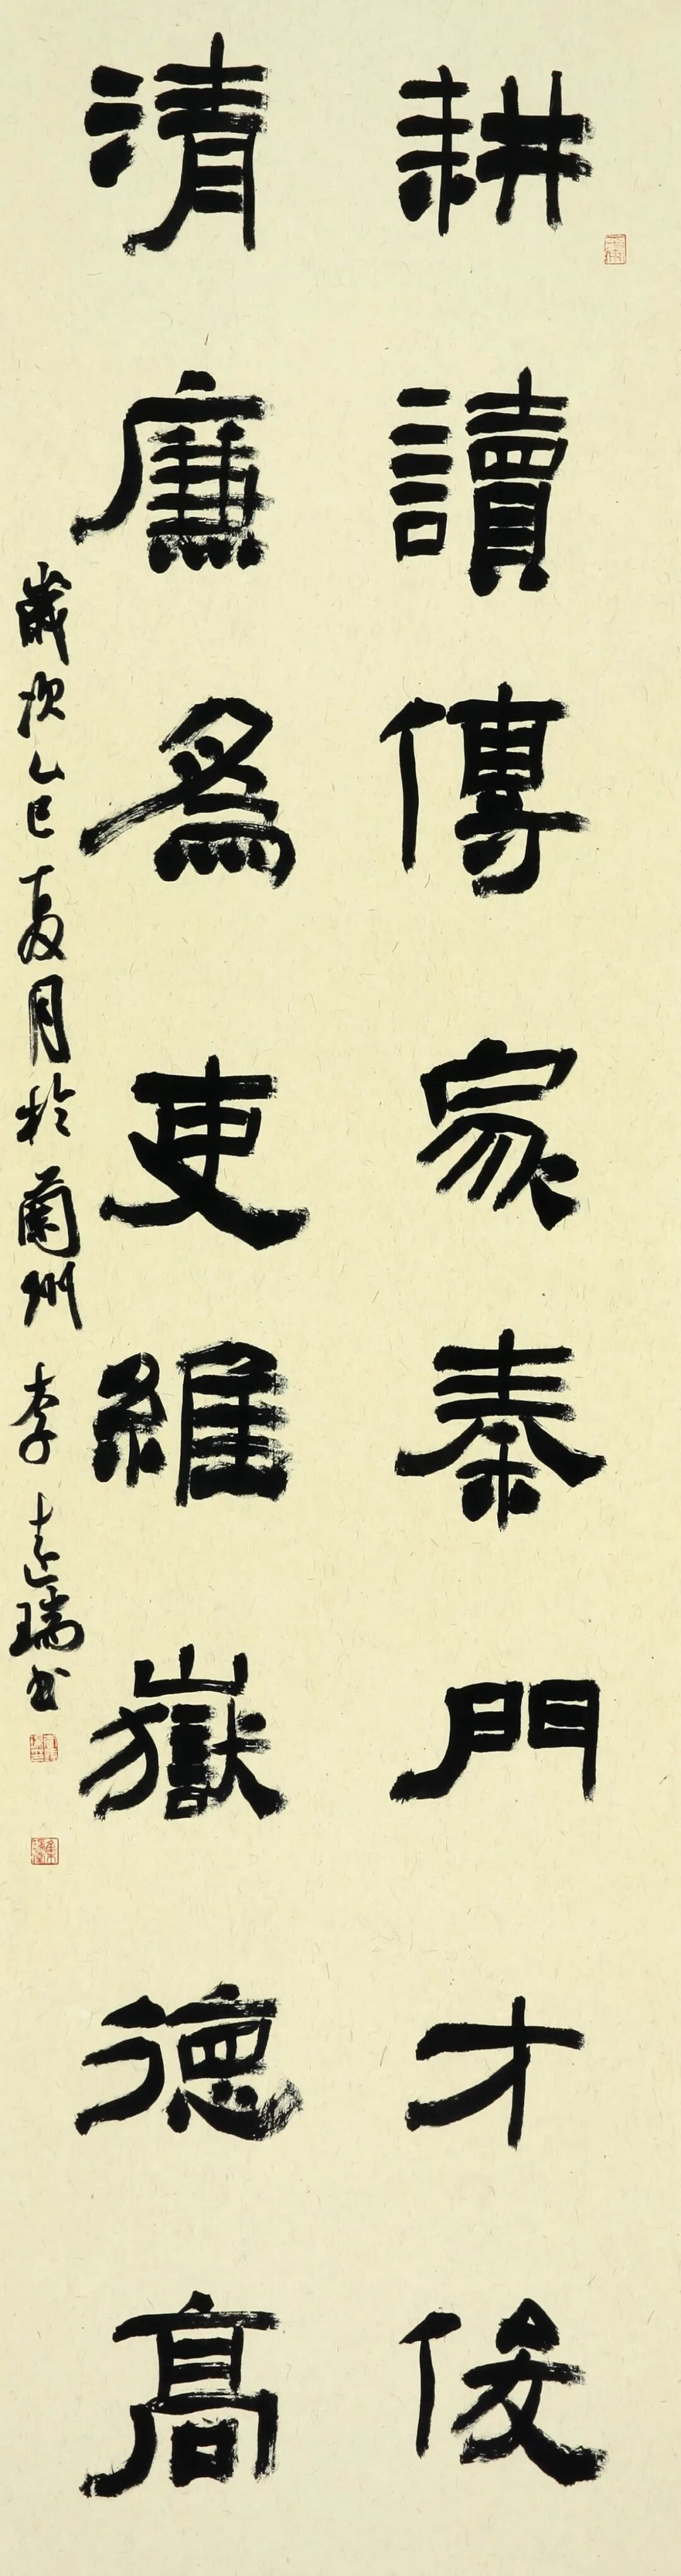 耕讀傳家秦門才俊
清廉為吏維嶽德高
歲次乙巳夏月於蘭州 李志瑞書